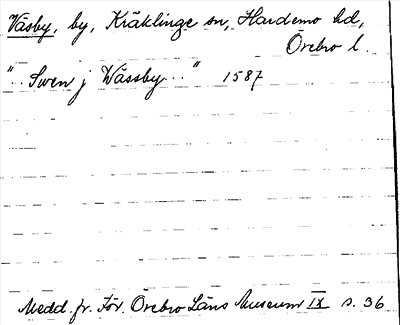 Väsby, by, Kräklinge sn, Hardemo hd,
Örebro l.
".. Swen j Wässby .." 1587
Medd. fr. För. Örebro Läns Museum IX s. 36